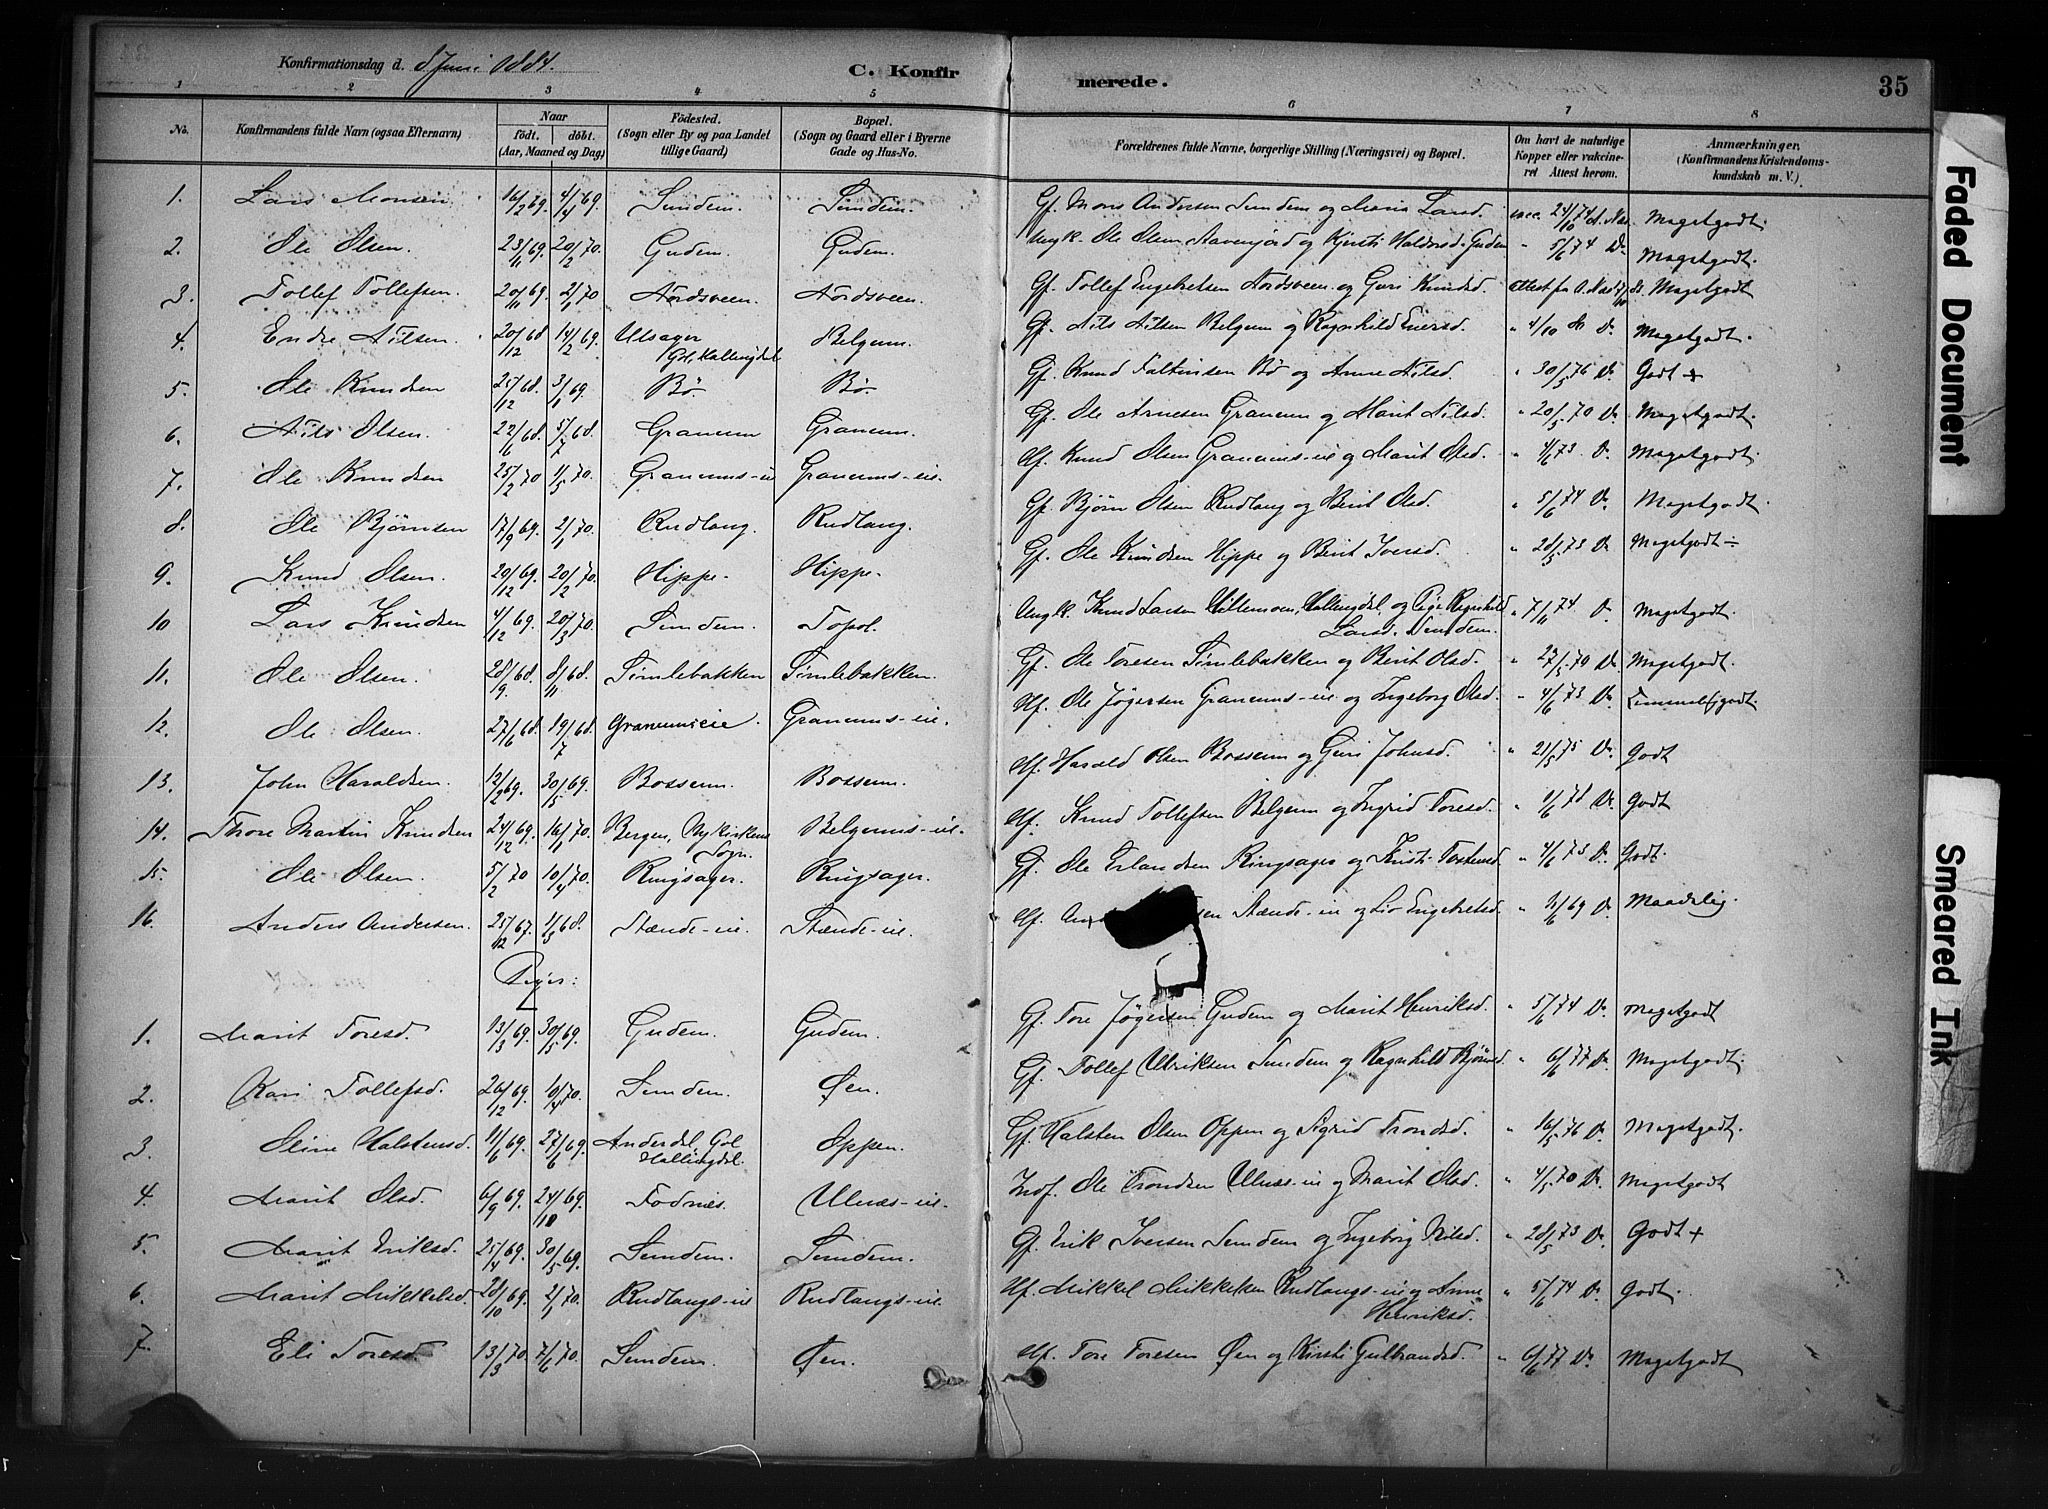 Konfirmationsdag d. 8 Juni 1884.
C. Konfirmerede.
35
1 2 3 4 5 6 7 8
No. Konfirmandens fulde Navn (ogsaa Efternavn) Naar født. døbt. (Aar, Maaned og Dag) Födested. (Sogn eller By og paa Landet tillige Gaard) Bopæl. (Sogn og Gaard eller i Byerne Gade og Hus-No. Forældrenes fulde Navne, borgerlige Stilling (Næringsvei) og Bopæl. Om havt de naturlige Kopper eller vakcineret Attest herom. Anmærkninger. (Konfirmandens Kristendomskundskab m. V.)
1. Lars Monsen 16/2 69. 4/4 69. Semdem. Semdem. Gf. Mons Andersen Semdem og Maria Larsd. vacc. 24/10 74 A. Næs. Megetgodt.
2. Ole Olsen. 23/11 69. 20/2 70. Gudem. Gudem. Ungk. Ole Olsen og Kjersti Haldorsd. Gudem " 5/6 74 Do. Megetgodt.
3. Tollef Tollefsen. 20/11 69. 2/1 70 Nordsveen. Nordsveen. Gf. Tollef Engebretsen Nordsveen og Guri Knudsd. Attest fra A. Næs Megetgodt
4. Endre Nilsen. 20/12 68 14/2 69. Ulsager Gol, Hallingdal Belgum. Gf. Nils Nilsen Belgum og Ragnhild Eversd. " 4/10 Do. Megetgodt.
5. Ole Knudsen 25/12 68. 3/1 69. Bø. Bø. Gf. Knud Faltinsen Bø og Anne Nilsd. " 30/5 76 Do. Godt +
6. Nils Olsen. 22/6 68. 5/7 68. Granum Granum. Gf. Ole Arnesen Granum og Marit Nilsd. " 20/5 70 Do. Megetgodt.
7. Ole Knudsen 25/2 70 1/5 70. Granums-eie Granums-eie. Hf. Knud Olsen Granums-eie og Marit Olsd. " 4/6 73 Do. Megetgodt.
8. Ole Bjørnsen 17/9 69. 2/1 70. Rudlang. Rudlang. Gf. Bjørn Olsen Rudlang og Berit Olsd. " 5/6 74 Do. Megetgodt.
9. Knud Olsen. 29/12 69. 20/2 70. Hippe. Hippe. Gf. Ole Knudsen Hippe og Berit Iversd. " 28/5 73 Do. Megetgodt ÷
10 Lars Knudsen 4/12 69. 20/3 70. Semdem. Topol. Ungk. Knud Larsen Hallingdal, og Pige Ragnhild Larsd. Semdem. " 7/11 74 Do. Megetgodt.
11. Ole Olsen. 28/9 68. 8/11 68. Simlebakken Simlebakken. Gf. Ole Toresen Simlebakken og Berit Olsd. " 27/5 70 Do. Megetgodt.
12. Ole Olsen. 27/6 68. 19/7 68. Granumseie. Granums-eie. Hf. Ole Jøgersen Granums-eie og Ingeborg Olsd. " 4/6 73 Do. Temmeliggodt.
13. John Haraldsen. 12/2 69. 30/5 69. Bossum. Bossum. Hf. Harald Olsen Bossum og Guri Johnsd. " 21/5 75 Do. Godt
14. Thore Martin Knudsen 24/12 69. 16/1 70. Bergen, Nykirkens Sogn. Belgums-eie. Hf. Knud Tollefsen Belgum og Ingrid Toresd. " 1/6 78 Do. Godt
15. Ole Olsen. 5/2 70 10/4 70. Ringsager. Ringsager. Gf. Ole Erlandsen Ringsager og Kristi Torstensd. " 4/6 73 Do. Godt.
16. Anders Andersen. 25/12 67. 1/5 68. Stænde-eie. Stænde-eie. Hf. Stænde-eie og Liv Engebretsd. " 1/6 69 Do. Maadelig.
Piger:
1. Marit Toresd. 13/3 69. 30/5 69. Gudem. Gudem. Gf. Tore Jøgersen Gudem og Marit Henriksd. " 5/6 74 Do. Megetgodt
2. Kari Tollefsd. 26/12 69. 10/4 70. Semdem. Øen. Gf. Tollef Ulriksen Semdem og Ragnhild Bjørnsd. " 6/6 77 Do. Megetgodt.
3. Oline Halstensd. 11/6 69. 27/6 69. Anderdal, Gol Hallingdal. Oppen. Gf. Halsten Olsen Oppen og Sigrid Trondsd. " 16/5 76 Do. Megetgodt.
4. Marit Olsd. 6/9 69. 24/10 69. Fodnæs. Ulnæs-eie. Indf. Ole Trondsen Ulnæs-eie og Marit Olsd. " 4/5 70 Do. Megetgodt
5. Marit Eriksd. 25/4 69. 30/5 69. Semdem. Semdem. Gf. Erik Iversen Semdem og Ingeborg Nilsd. " 28/5 73 Do. Godt +
6. Marit Mikkelsd. 28/10 69. 2/1 70. Rudlangs-eie Rudlangs-eie. Hf. Mikkel Mikkelsen Rudlangs-eie og Anne Henriksd. " 5/6 74 Do. Godt.
7. Eli Toresd. 13/3 70. 7/6 70. Semdem. Øen. Hf. Tore Toresen Øen og Kirsti Gulbrandsd. " 6/6 77 Do. Megetgodt
Faded Document
Smeared Ink